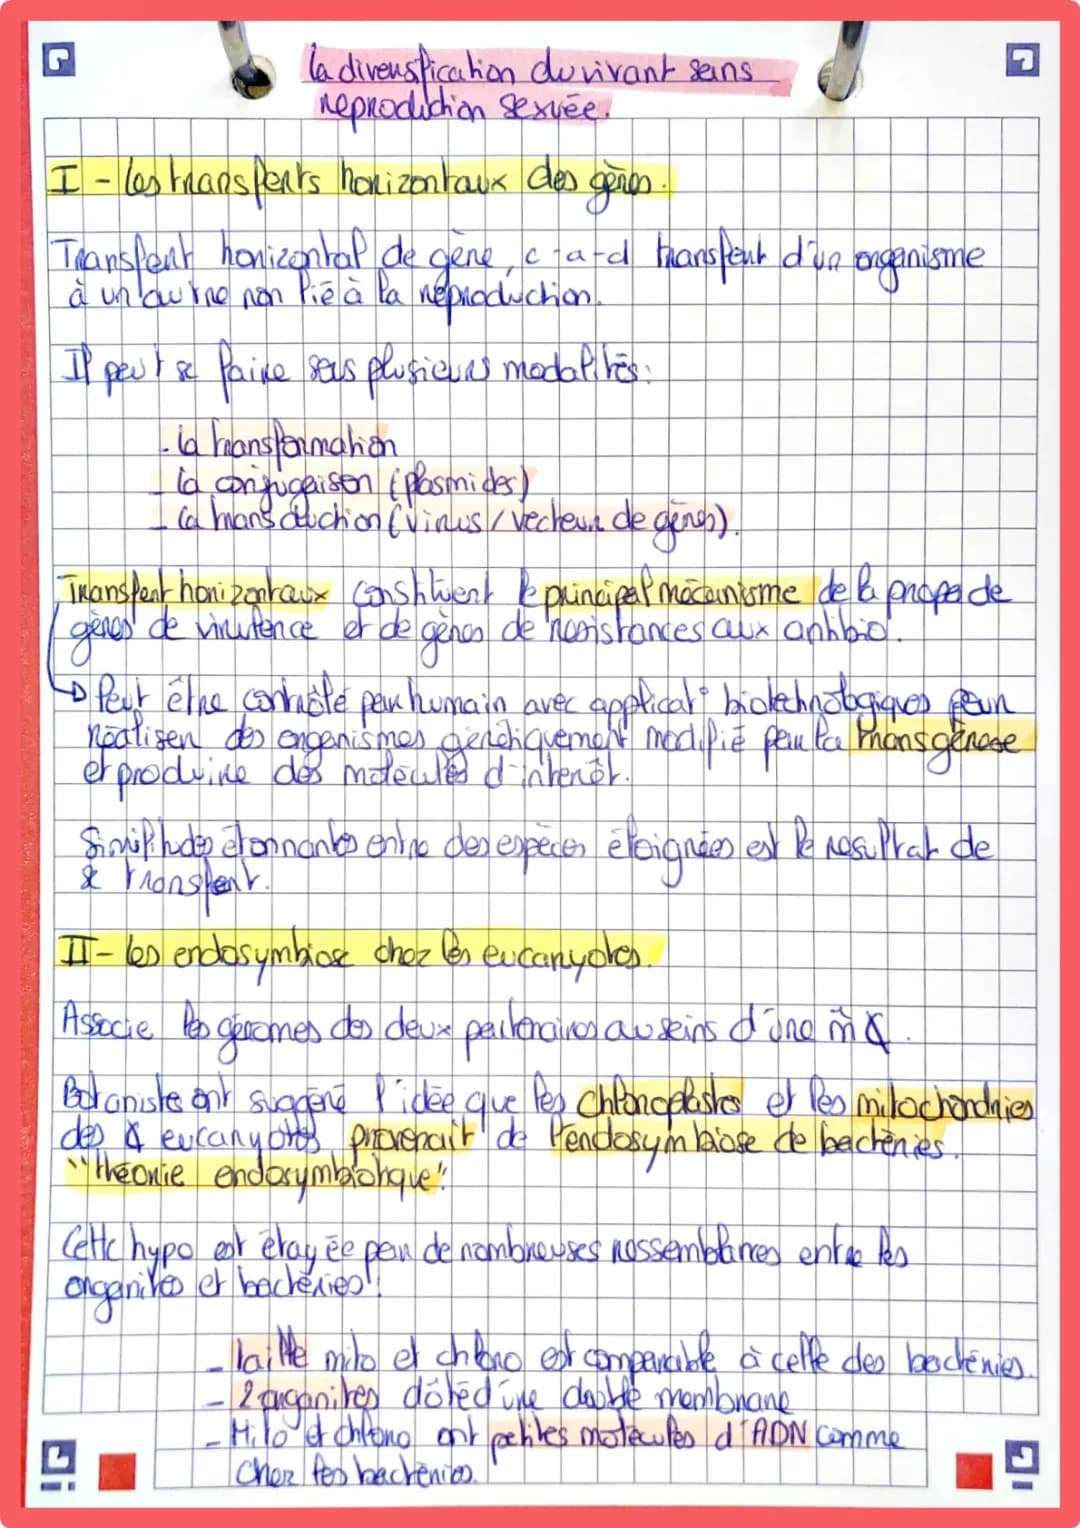 la diversification du vivant sans
reproduction sexuée.
I - les transferts horizontaux des gènes.
Transfert horizontal de gène, c-a-d transfert d'un organisme
à un autre non lié à la reproduction.
Il peut se faire sous plusieurs modalités:
- la transformation
- la conjugaison (plasmides)
- la transduction (virus / vecteur de gènes).
Transfert horizontaux constituent le principal mécanisme de la propa de
gènes de virulence et de gènes de résistances aux antibio.
→ Peut être contrôlé par humain avec applicat° biotechnologiques pour
réaliser des organismes génétiquement modifié par la transgénèse
et produire des molécules d'intérêt.
Similitudes étonnantes entre des espèces éloignées est le résultat de
ce transfert.
II - les endosymbiose chez les eucaryotes.
Associe les génomes des deux partenaires au seins d'une m̂
Botaniste ont suggéré l'idée que les chloroplastes et les mitochondries
des eucaryotes provenait de l'endosymbiose de bactéries.
"théorie endosymbiotique".
Cette hypo est étayée par de nombreuses ressemblances entre les
organites et bactéries:
- taille mito et chloro est comparable à celle des bactéries.
- 2 organites dôté d'une double membrane
- Mito et chloro ont petites molécules d'ADN comme
chez les bactéries.